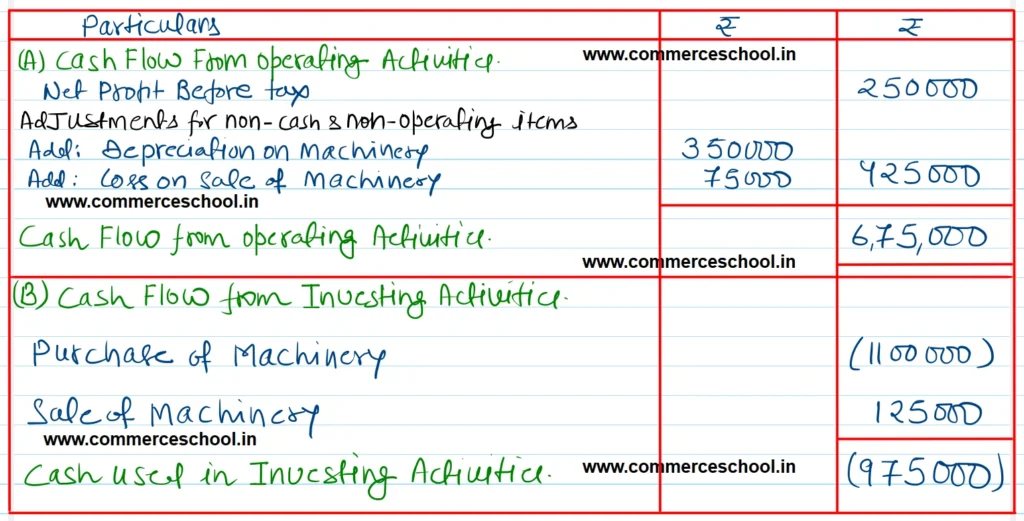 Particulars ₹ ₹
(A) Cash Flow From operating Activities. www.commerceschool.in
Net Profit Before tax 250000
Adjustments for non-cash & non-operating items
Add: Depreciation on Machinery 350000
Add: Loss on Sale of Machinery 75000 425000
www.commerceschool.in
Cash Flow from operating Activities. 6,75,000
www.commerceschool.in
(B) Cash Flow from Investing Activities.
Purchase of Machinery (1100000)
Sale of Machinery 125000
www.commerceschool.in
Cash used in Investing Activities. www.commerceschool.in (975000)